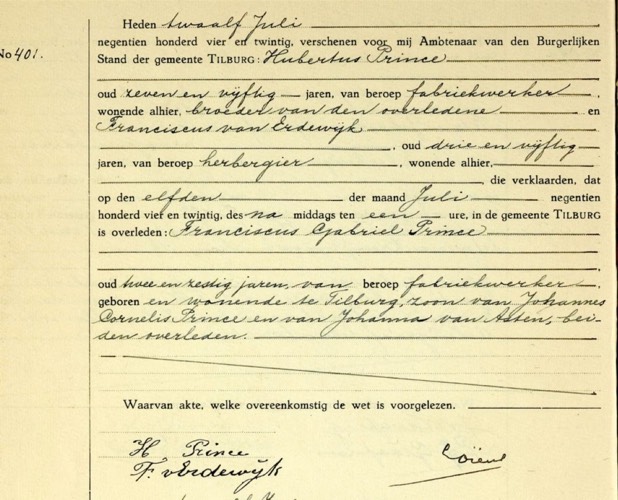 Heden twaalf Juli
negentien honderd vier en twintig, verschenen voor mij Ambtenaar van den Burgerlijken
No 401. Stand der gemeente TILBURG: Hubertus Prince
oud zeven en vijftig jaren, van beroep fabriekwerker,
wonende alhier, broeder van den overledene en
Franciscus van Erdewijk
, oud drie en vijftig
jaren, van beroep herbergier, wonende alhier,
, die verklaarden, dat
op den elfden der maand Juli negentien
honderd vier en twintig, des na middags ten een ure, in de gemeente TILBURG
is overleden: Franciscus Gabriel Prince
,
oud twee en zestig jaren, van beroep fabriekwerker,
geboren en wonende te Tilburg, zoon van Johannes
Cornelis Prince en van Johanna van Asten, bei-
den overleden.
Waarvan akte, welke overeenkomstig de wet is voorgelezen.
H Prince
F. v Erdewijk